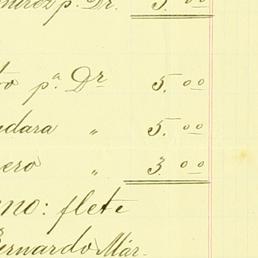 p.ʳ Dr. 5.00
to p.ª Dr 5.00
dara " 5.00
ero " 3.00
no: flete
Bernardo Már.